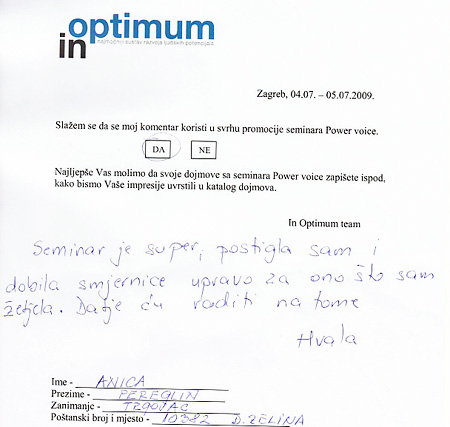 optimum
in
Zagreb, 04.07. – 05.07.2009.
Slažem se da se moj komentar koristi u svrhu promocije seminara Power voice.
DA NE
Najljepše Vas molimo da svoje dojmove sa seminara Power voice zapišete ispod,
kako bismo Vaše impresije uvrstili u katalog dojmova.
In Optimum team
Seminar je super, postigla sam i
dobila smjernice upravo za ono što sam
željela. Dalje ću raditi na tome
Hvala
Ime - ANICA
Prezime - PEREGLIN
Zanimanje - TRGOVAC
Poštanski broj i mjesto - 10382 D. ZELINA